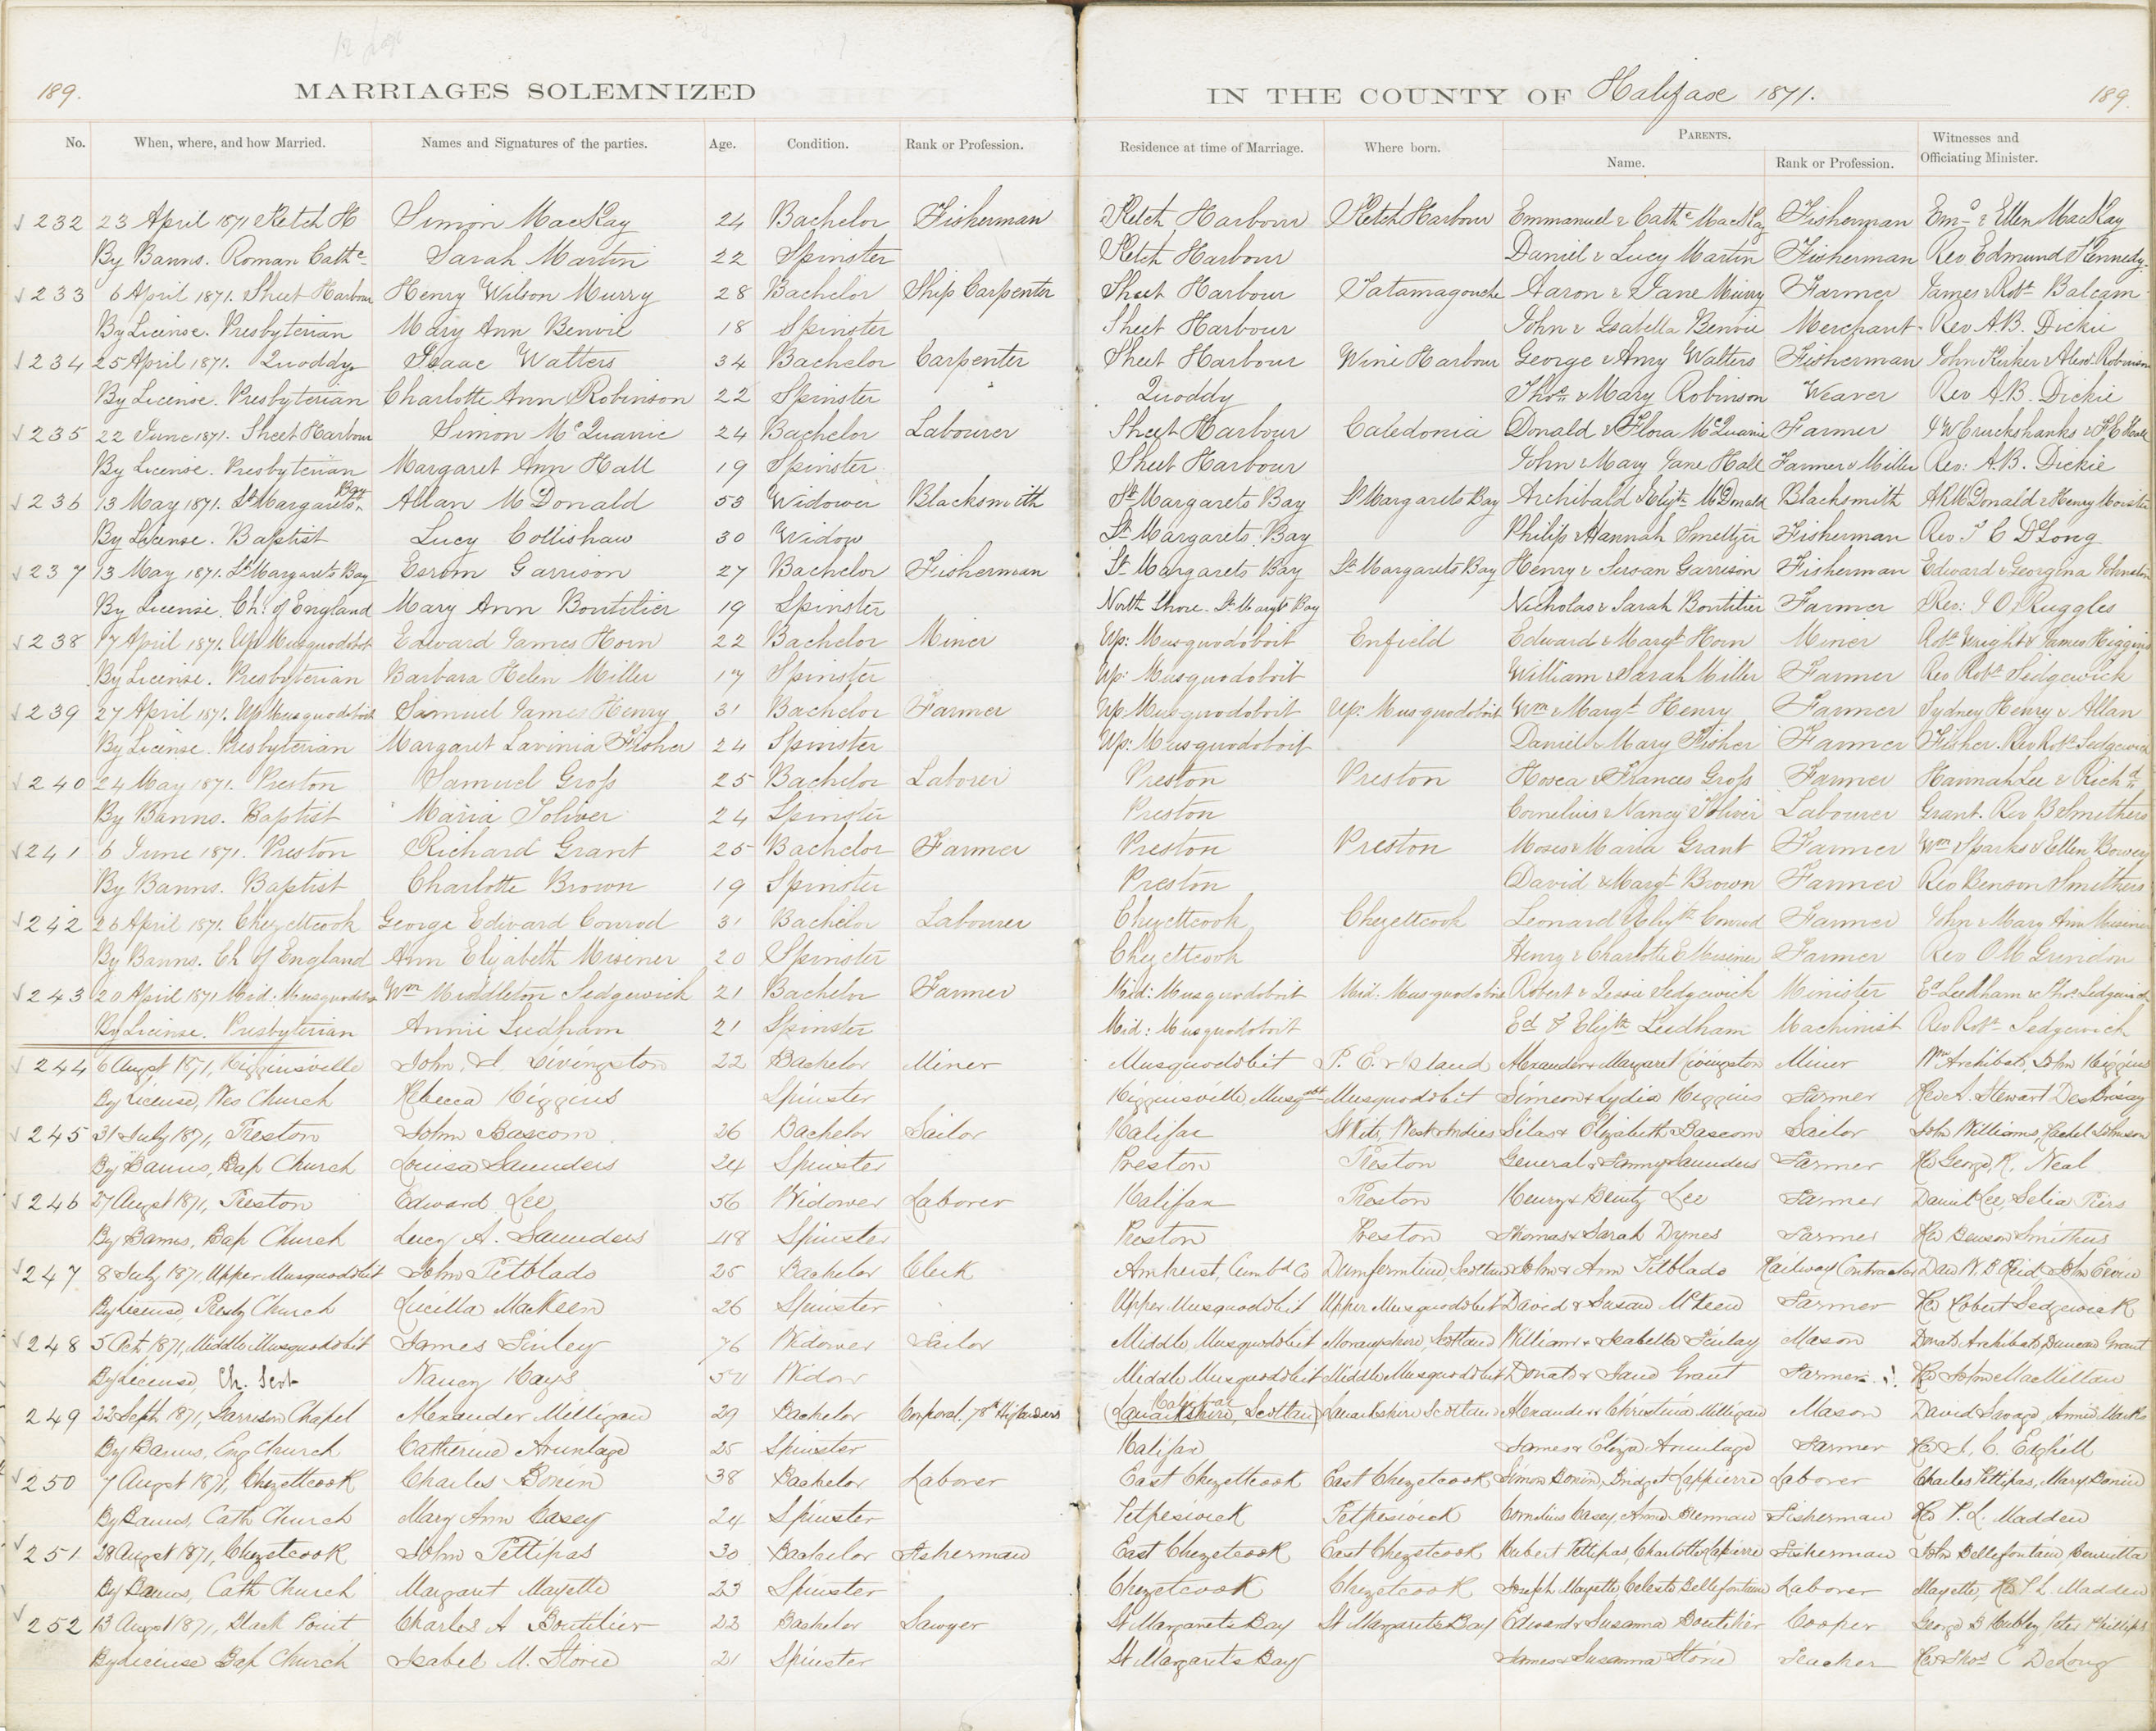 189.
MARRIAGES SOLEMNIZED
IN THE COUNTY OF Halifax 1871.
189.
No. When, where, and how Married. Names and Signatures of the parties. Age. Condition. Rank or Profession. Residence at time of Marriage. Where born. PARENTS. Name. Rank or Profession. Witnesses and Officiating Minister.
232 23 April 1871 Ketch H Simon MacKay 24 Bachelor Fisherman Ketch Harbour Ketch Harbour Emmanuel & Cathe MacKay Fisherman Eml & Ellen MacKay
By Banns. Roman Cathc Sarah Martin 22 Spinster Ketch Harbour Daniel & Lucy Martin Fisherman Rev Edmund Kennedy.
233 6 April 1871. Sheet Harbour Henry Wilson Murry 28 Bachelor Ship Carpenter Sheet Harbour Tatamagouche Aaron & Jane Murry Farmer James & Robt Balcam
By License. Presbyterian Mary Ann Benvie 18 Spinster Sheet Harbour John & Isabella Benvie Merchant. Rev A.B. Dickie
234 25 April 1871. Quoddy Isaac Walters 34 Bachelor Carpenter Sheet Harbour Wine Harbour George & Amy Walters Fisherman John Kirker & Alexr Robinson
By License. Presbyterian Charlotte Ann Robinson 22 Spinster Quoddy Thos & Mary Robinson Weaver Rev A.B. Dickie
235 22 June 1871. Sheet Harbour Simon McQuarrie 24 Bachelor Labourer Sheet Harbour Caledonia Donald & Flora McQuarrie Farmer J W Cruckshanks & Hall
By License. Presbyterian Margaret Ann Hall 19 Spinster Sheet Harbour John & Mary Jane Hall Farmer & Miller Rev: A.B. Dickie
236 13 May 1871. St Margarets Bay Allan McDonald 53 Widower Blacksmith St Margarets Bay St Margarets Bay Archibald & Elizth McDonald Blacksmith McDonald & Henry
By License. Baptist Lucy Collishaw 30 Widow St Margarets Bay Philip & Hannah Smeltzer Fisherman Rev T C DLong
237 13 May 1871. St Margarets Bay Esrom Garrison 27 Bachelor Fisherman St Margarets Bay St Margarets Bay Henry & Susan Garrison Fisherman Edward & Georgina Johnston
By License. Ch: of England Mary Ann Boutilier 19 Spinster North Shore. St Margts Bay Nicholas & Sarah Boutilier Farmer Rev: J O. Ruggles
238 17 April 1871. Up Musquodobot Edward James Horn 22 Bachelor Miner Up: Musquodoboit Enfield Edward & Margt Horn Miner Robt Wright & James Higgins
By License. Presbyterian Barbara Helen Miller 17 Spinster Up: Musquodoboit William & Sarah Miller Farmer Rev Robt Sedgewick
239 27 April 1871. Up Musquodoboit Samuel James Henry 31 Bachelor Farmer Up Musquodoboit Up: Musquodoboit Wm & Margt Henry Farmer Sydney Henry & Allan
By License. Presbyterian Margaret Lavinia Fisher 24 Spinster Up: Musquodoboit Daniel & Mary Fisher Farmer Fisher. Rev Robt Sedgewick
240 24 May 1871. Preston Samuel Gross 25 Bachelor Laborer Preston Preston Hosea & Frances Gross Farmer Hannah Lee & Richd
By Banns. Baptist Maria Toliver 24 Spinster Preston Cornelius & Nancy Toliver Labourer Grant. Rev B Smithers
241 6 June 1871. Preston Richard Grant 25 Bachelor Farmer Preston Preston Moses & Maria Grant Farmer Wm Sparks & Ellen Bowers
By Banns. Baptist Charlotte Brown 19 Spinster Preston David & Margt Brown Farmer Rev Benson Smithers
242 26 April 1871. Chezettcook George Edward Conrod 31 Bachelor Labourer Chezettcook Chezettcook Leonard & Elizth Conrod Farmer John & Mary Ann Misener
By Banns. Ch of England Ann Elizabeth Misener 20 Spinster Chezettcook Henry & Charlotte E Misener Farmer Rev O M Grindon
243 20 April 1871 Mid: Musquodobo Wm Middleton Sedgewick 21 Bachelor Farmer Mid: Musquodoboit Mid: Musquodoboi Robert & Jessie Sedgewick Minister Ed Leedham & Thos Sedgewick
By License. Presbyterian Annie Ludham 21 Spinster Mid: Musquodoboit Ed & Elizth Leedham Machinist Rev Robt Sedgewick
244 6 Augst 1871, Higginsville John H. Livingston 22 Bachelor Miner Musquodobit P. E. Island Alexander & Margaret Livingston Miner Wm Archibald, John Higgins
By License, Wes Church Rebecca Higgins Spinster Higginsville, Musqobt Musquodobit Simeon & Lydia Higgins Farmer Rev A. Stewart DesBrisay
245 31 July 1871, Preston John Bascom 26 Bachelor Sailor Halifax St Kits, West Indies Silas & Elizabeth Bascom Sailor John Williams, Rachel Johnson
By Banns, Bap Church Louisa Saunders 24 Spinster Preston Preston General & Fanny Saunders Farmer Rev George, R. Neal
246 27 Augst 1871, Preston Edward Lee 56 Widower Laborer Halifax Preston Henry & Lee Farmer Daniel Lee, Selia Piers
By Banns, Bap Church Lucy A. Saunders 48 Spinster Preston Preston Thomas & Sarah Dymes Farmer Rev Benson Smithers
247 8 July 1871, Upper Musquodobit John Pitblado 25 Bachelor Clerk Amherst, Cumbd Co Dumfermline, Scotland John & Ann Pitblado Railway Contractor Davd W. B Reid, John
By License, Presby Church Lucilla MacKeen 26 Spinster Upper Musquodobit Upper Musquodobit David & Susan McKeen Farmer Rev Robert Sedgewick
248 5 Oct 1871, Middle Musquodobit James Finley 76 Widower Sailor Middle, Musquodobit Morayshire, Scotland William & Isabella Finlay Mason Donald Archibald, Duncan Grant
By License, Ch. Scot Nancy Hays Widow Middle Musquodobit Middle Musquodobit Donald & Grant Farmer Rev John MacMillan
249 22 Septr 1871, Garrison Chapel Alexander Milligan 29 Bachelor Corporal, 78th Highlanders Halifax (Lanarkshire, Scotland) Lanarkshire Scotland Alexander & Christina Milligan Mason David Savage, Annie Marks
By Banns, Eng Church Catherine Armitage 25 Spinster Halifax James & Eliza Armitage Farmer Rev
250 7 Augst 1871, Chezettcook Charles Bonin 38 Bachelor Laborer East Chezettcook East Chezetcook Simon Bonin, Bridget Lappierre Laborer Charles Pettipas, Mary Bonin
By Banns, Cath Church Mary Ann Casey 24 Spinster Petpesiwick Petpesiwick Cornelius Casey, Anne Brennan Fisherman Rev P. L. Madden
251 28 Augst 1871, Chezetcook John Pettipas 30 Bachelor Fisherman East Chezetcook East Chezetcook Hubert Pettipas, Charlotte Lapierre Fisherman John Bellefontain, Henrietta
By Banns, Cath Church Margaret Mayette 23 Spinster Chezetcook Chezetcook Joseph Mayette, Celeste Bellefontaine Laborer Mayette, Rev P. L. Madden
252 13 Augst 1871, Black Point Charles A Boutilier 23 Bachelor Sawyer St Margarets Bay St Margarets Bay Edward & Susanna Boutilier Cooper George B Hubley, Peter Phillips
By License Bap Church Isabel M. Storie 21 Spinster St Margarets Bay James & Susanna Storie Teacher Rev Thos C DeLong